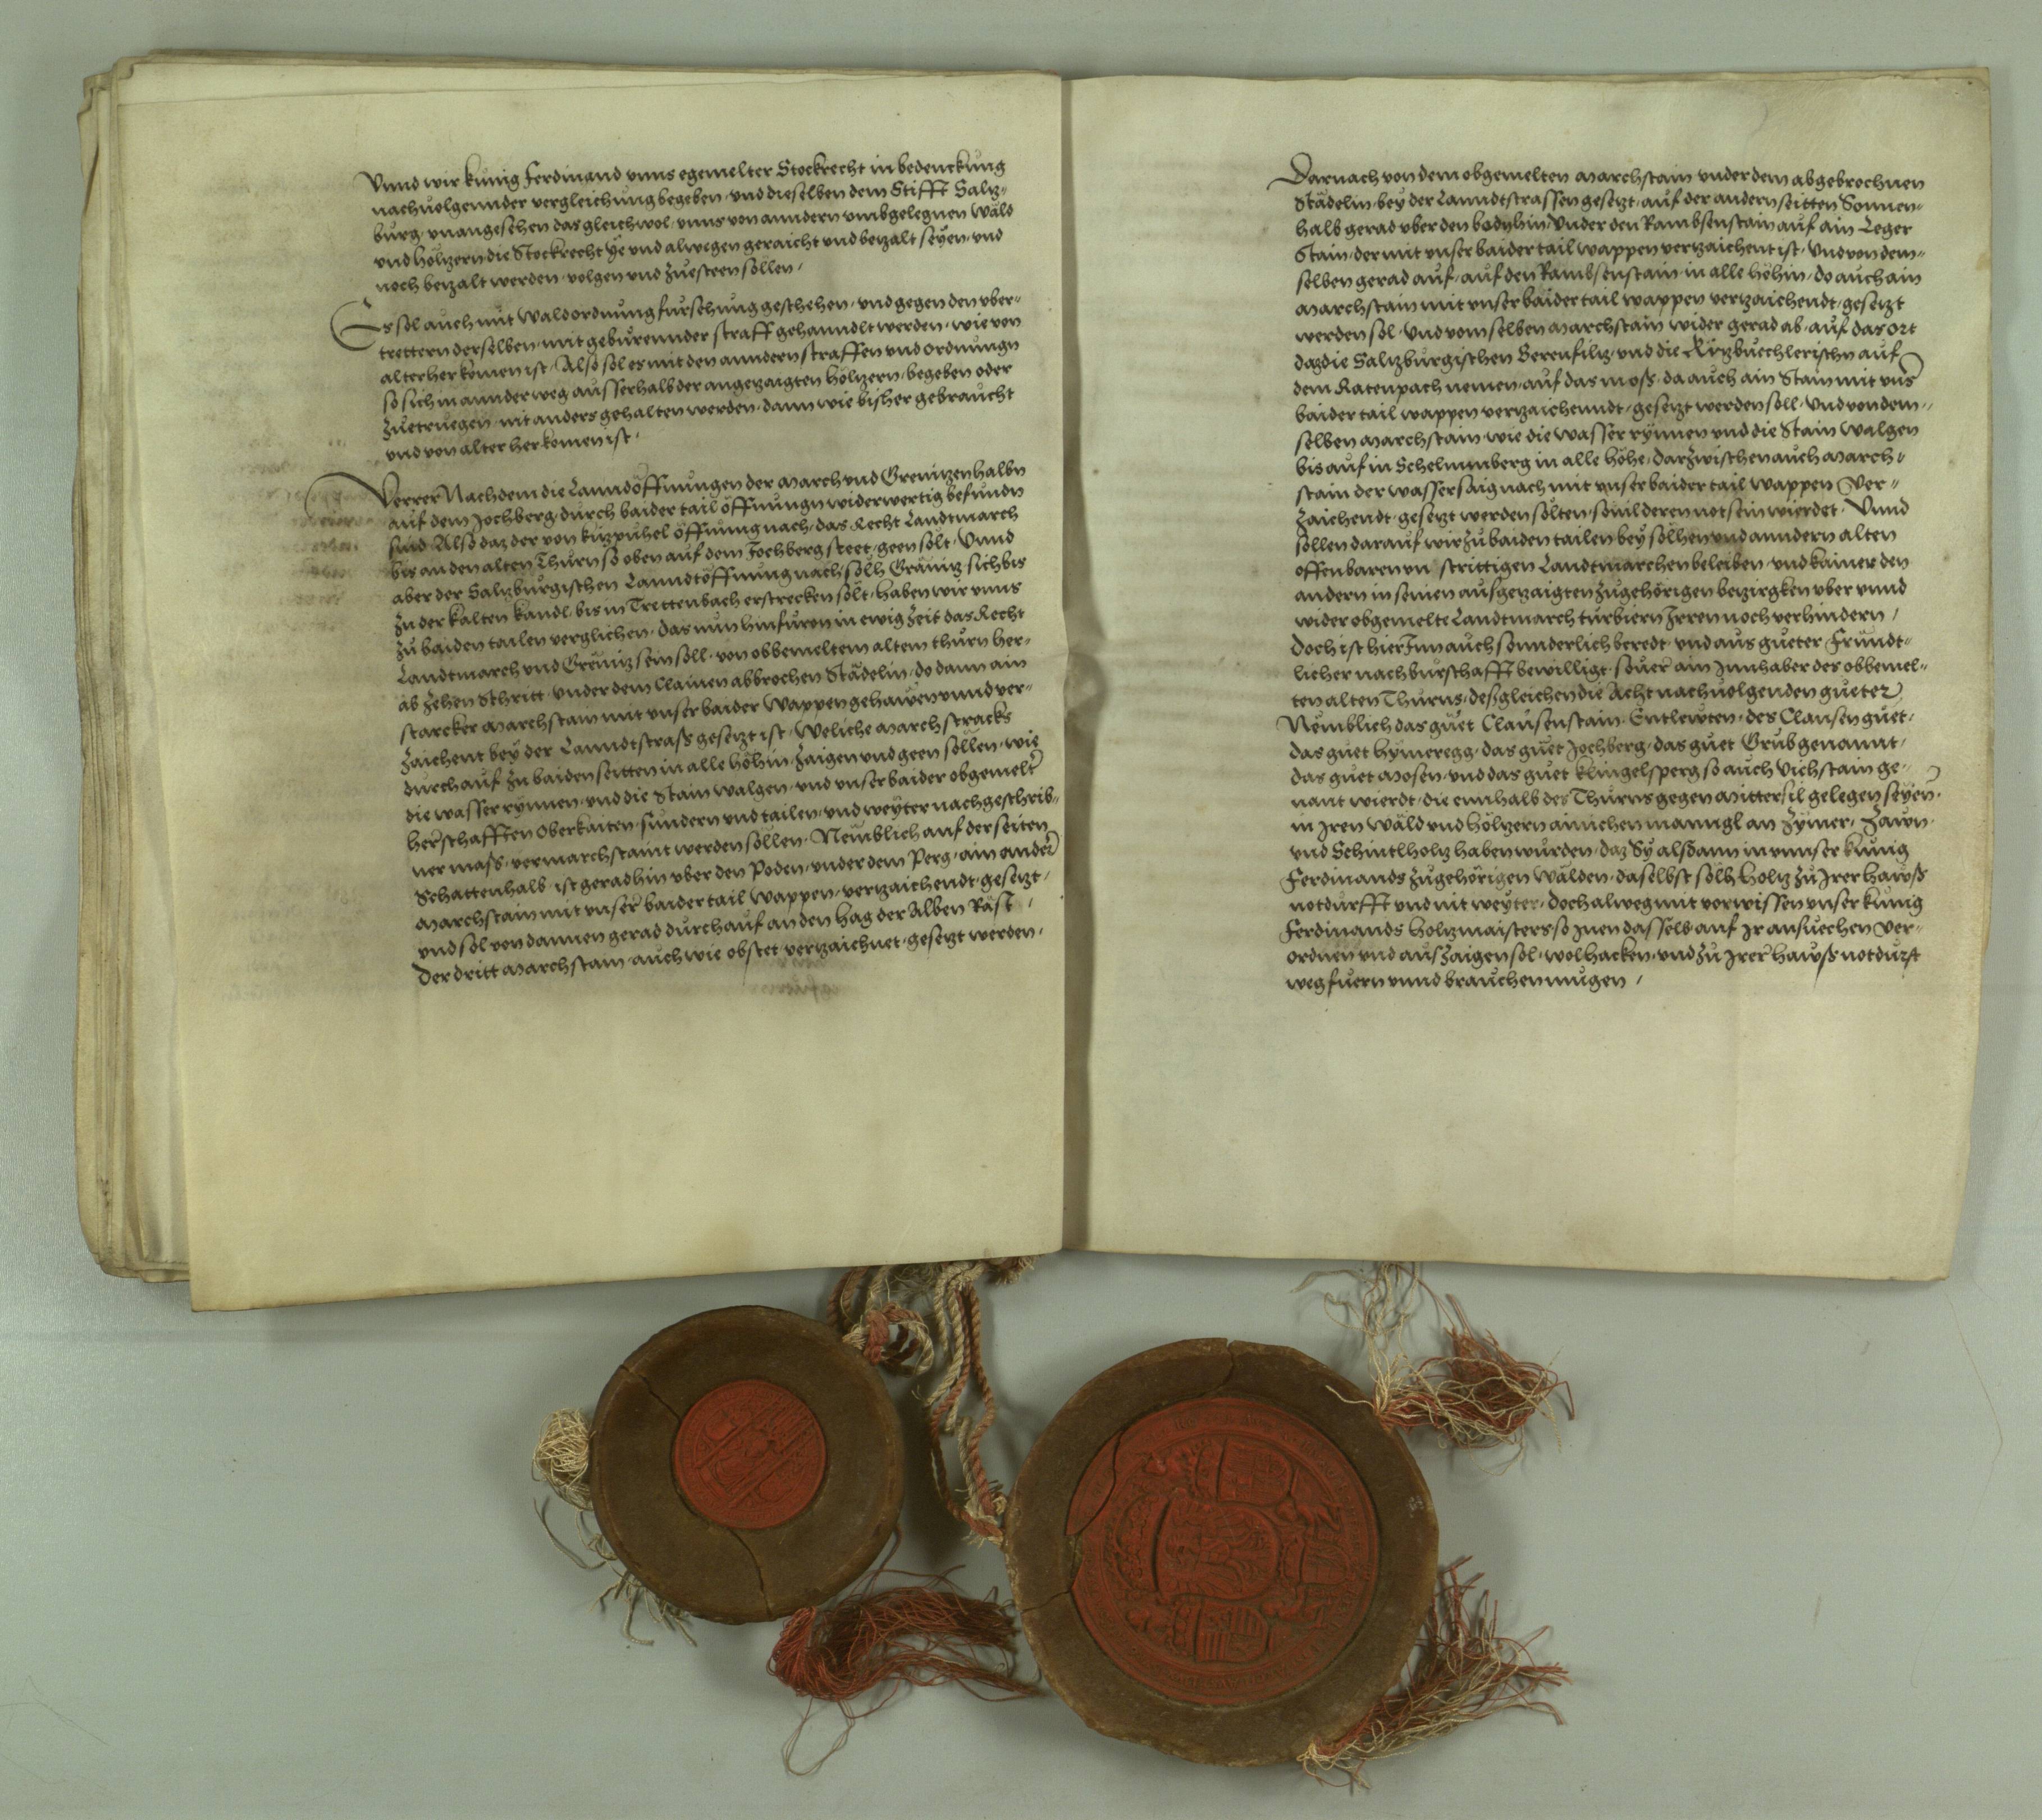 Vnnd wir kunig Ferdinand vnns egemelter Stockrecht in bedenckung
nachuolgennder vergleichung begeben vnd dieselben dem Stifft Saltz-
burg vnangesehen das gleichwol vnns von anndern vmbgelegnen wäld
vnd höltzern die Stockrecht ye vnd alwegen geraicht vnd betzalt seyen vnd
noch betzalt werden volgen vnd zuesteen sollen
Es sol auch mit waldordnung fursehung geschehen vnd gegen den vber-
trettern derselben mit geburennder straff gehanndlt werden wie von
alter herkomen ist Also sol es mit den anndern straffen vnd ordnungn
so sich in annder weg ausserhalb der angetzaigten höltzern begeben oder
zuetruegen nit anders gehalten werden dann wie bisher gebraucht
vnd von alter herkomen ist
Verrer Nachdem die Lanndöffnungen der March vnd Grenitzen halbn
auf dem Jochberg durch baider tail öffnungn widerwertig befundn
sind Also daz der von kitzpuhel öffnung nach das Recht Landtmarch
bis an den alten Thurn so oben auf dem Jochberg steet geen solt Vnnd
aber der Saltzburgischen Lanndtöffnung nach solh Gränitz sich bis
zu der kalten kandl bis in Trettenbach erstrecken solt haben wir vnns
zu baiden tailen verglichen das nun hinfuron in ewig zeit das Recht
Landtmarch vnd Grënitz sein soll von obbemeltem altem thurn her-
ab zehen Schritt vnder dem Clainen abbrochen Städelin do dann ain
starcker Marchstain mit vnser baider Wappen gehawen vnnd ver-
zaichent bey der Lanndtstrass gesetzt ist Weliche March stracks
durchauf zu baiden seitten in alle höhin zaigen vnd geen sollen wie
die wasser rynnen vnd die Stain walgen vnd vnser baider obgemelter
herschafften Oberkaiten sundern vnd tailen vnd weyter nachgeschrib-
ner mass vermarchstaint werden sollen Nëmblich auf der seiten
Schattenhalb ist gerad hin vber den Poden vnder dem Perg ain ander
Marchstain mit vnser baider tail Wappen vertzaichendt gesetzt
vnd sol von dannen gerad durchauf an den hag der Alben Räst
Der dritt Marchstain auch wie obstet vertzaichnet gesetzt werden
Darnach von dem obgemelten Marchstain vnder dem abgebrochnen
Städelin bey der Lanndtstrassen gesetzt auf der andern seitten Sonnen-
halb gerad vber den bodn hin Vnder den Rambsenstain auf ain Leger
Stain der mit vnser baider tail wappen vertzaichent ist Vnd von dem-
selben gerad auf auf den Rambsenstain in alle höhin do auch ain
Marchstain mit vnser baider tail wappen vertzaichendt gesetzt
werden sol Vnd vom selben Marchstain wider gerad ab auf das Ort
daz die Saltzburgischen Berenfiltz vnd die Kitzbuechlerischn auf
dem Ratenpach nemen auf das Moss da auch ain Stain mit vnser
baider tail wappen vertzaichenndt gesetzt werden soll Vnd von dem-
selben Marchstain wie die wasser rynnen vnd die Stain walgen
bis auf in Schelmnberg in alle höhe darzwischen auch March-
stain der wassersaig nach mit vnser baider tail wappen Ver-
zaichendt gesetzt werden solten souil deren not sein wierdet Vnnd
sollen darauf wir zu baiden tailen bey solhen vnd anndern alten
offenbaren vn strittigen Landtmarchen beleiben vnd kainer den
andern in seinen ausgetzaigten zugehörigen betzirgken vber vnnd
wider obgemelte Landtmarch turbiern Irren noch verhindern
Doch ist hierInn auch sonnderlich beredt vnd aus gueter Fründt-
licher nachburschafft bewilligt souer ain Innhaber des obbemel-
ten alten Thurns desgleichen die Acht nachuolgenden gueter
Nemblich das guet Clausenstain Entlewten des Clausen guet
das guet hymeregg das guet Jochberg das guet Grub genannt
das guet Mosen vnd das guet klingelsperg so auch Vichstain ge-
nant wierdt die ennhalb des Thurns gegen Mittersil gelegen seyen
in Iren Wäld vnd höltzern ainichen manngl an zymer zawn
vnd Schintlholtz haben wurden daz Sy alsdann in vnnser kunig
Ferdinands zugehörigen wälden daselbst solh holtz zu Irer hawss
notdurfft vnd nit weyter doch alweg mit vorwissen vnser kunig
Ferdinands holtzmaisters so Inen dasselb auf Ir ansuechen Ver-
ordnen vnd auszaigen sol wol hacken vnd zu Irer hawss notdurft
weg fuern vnnd brauchen mugen